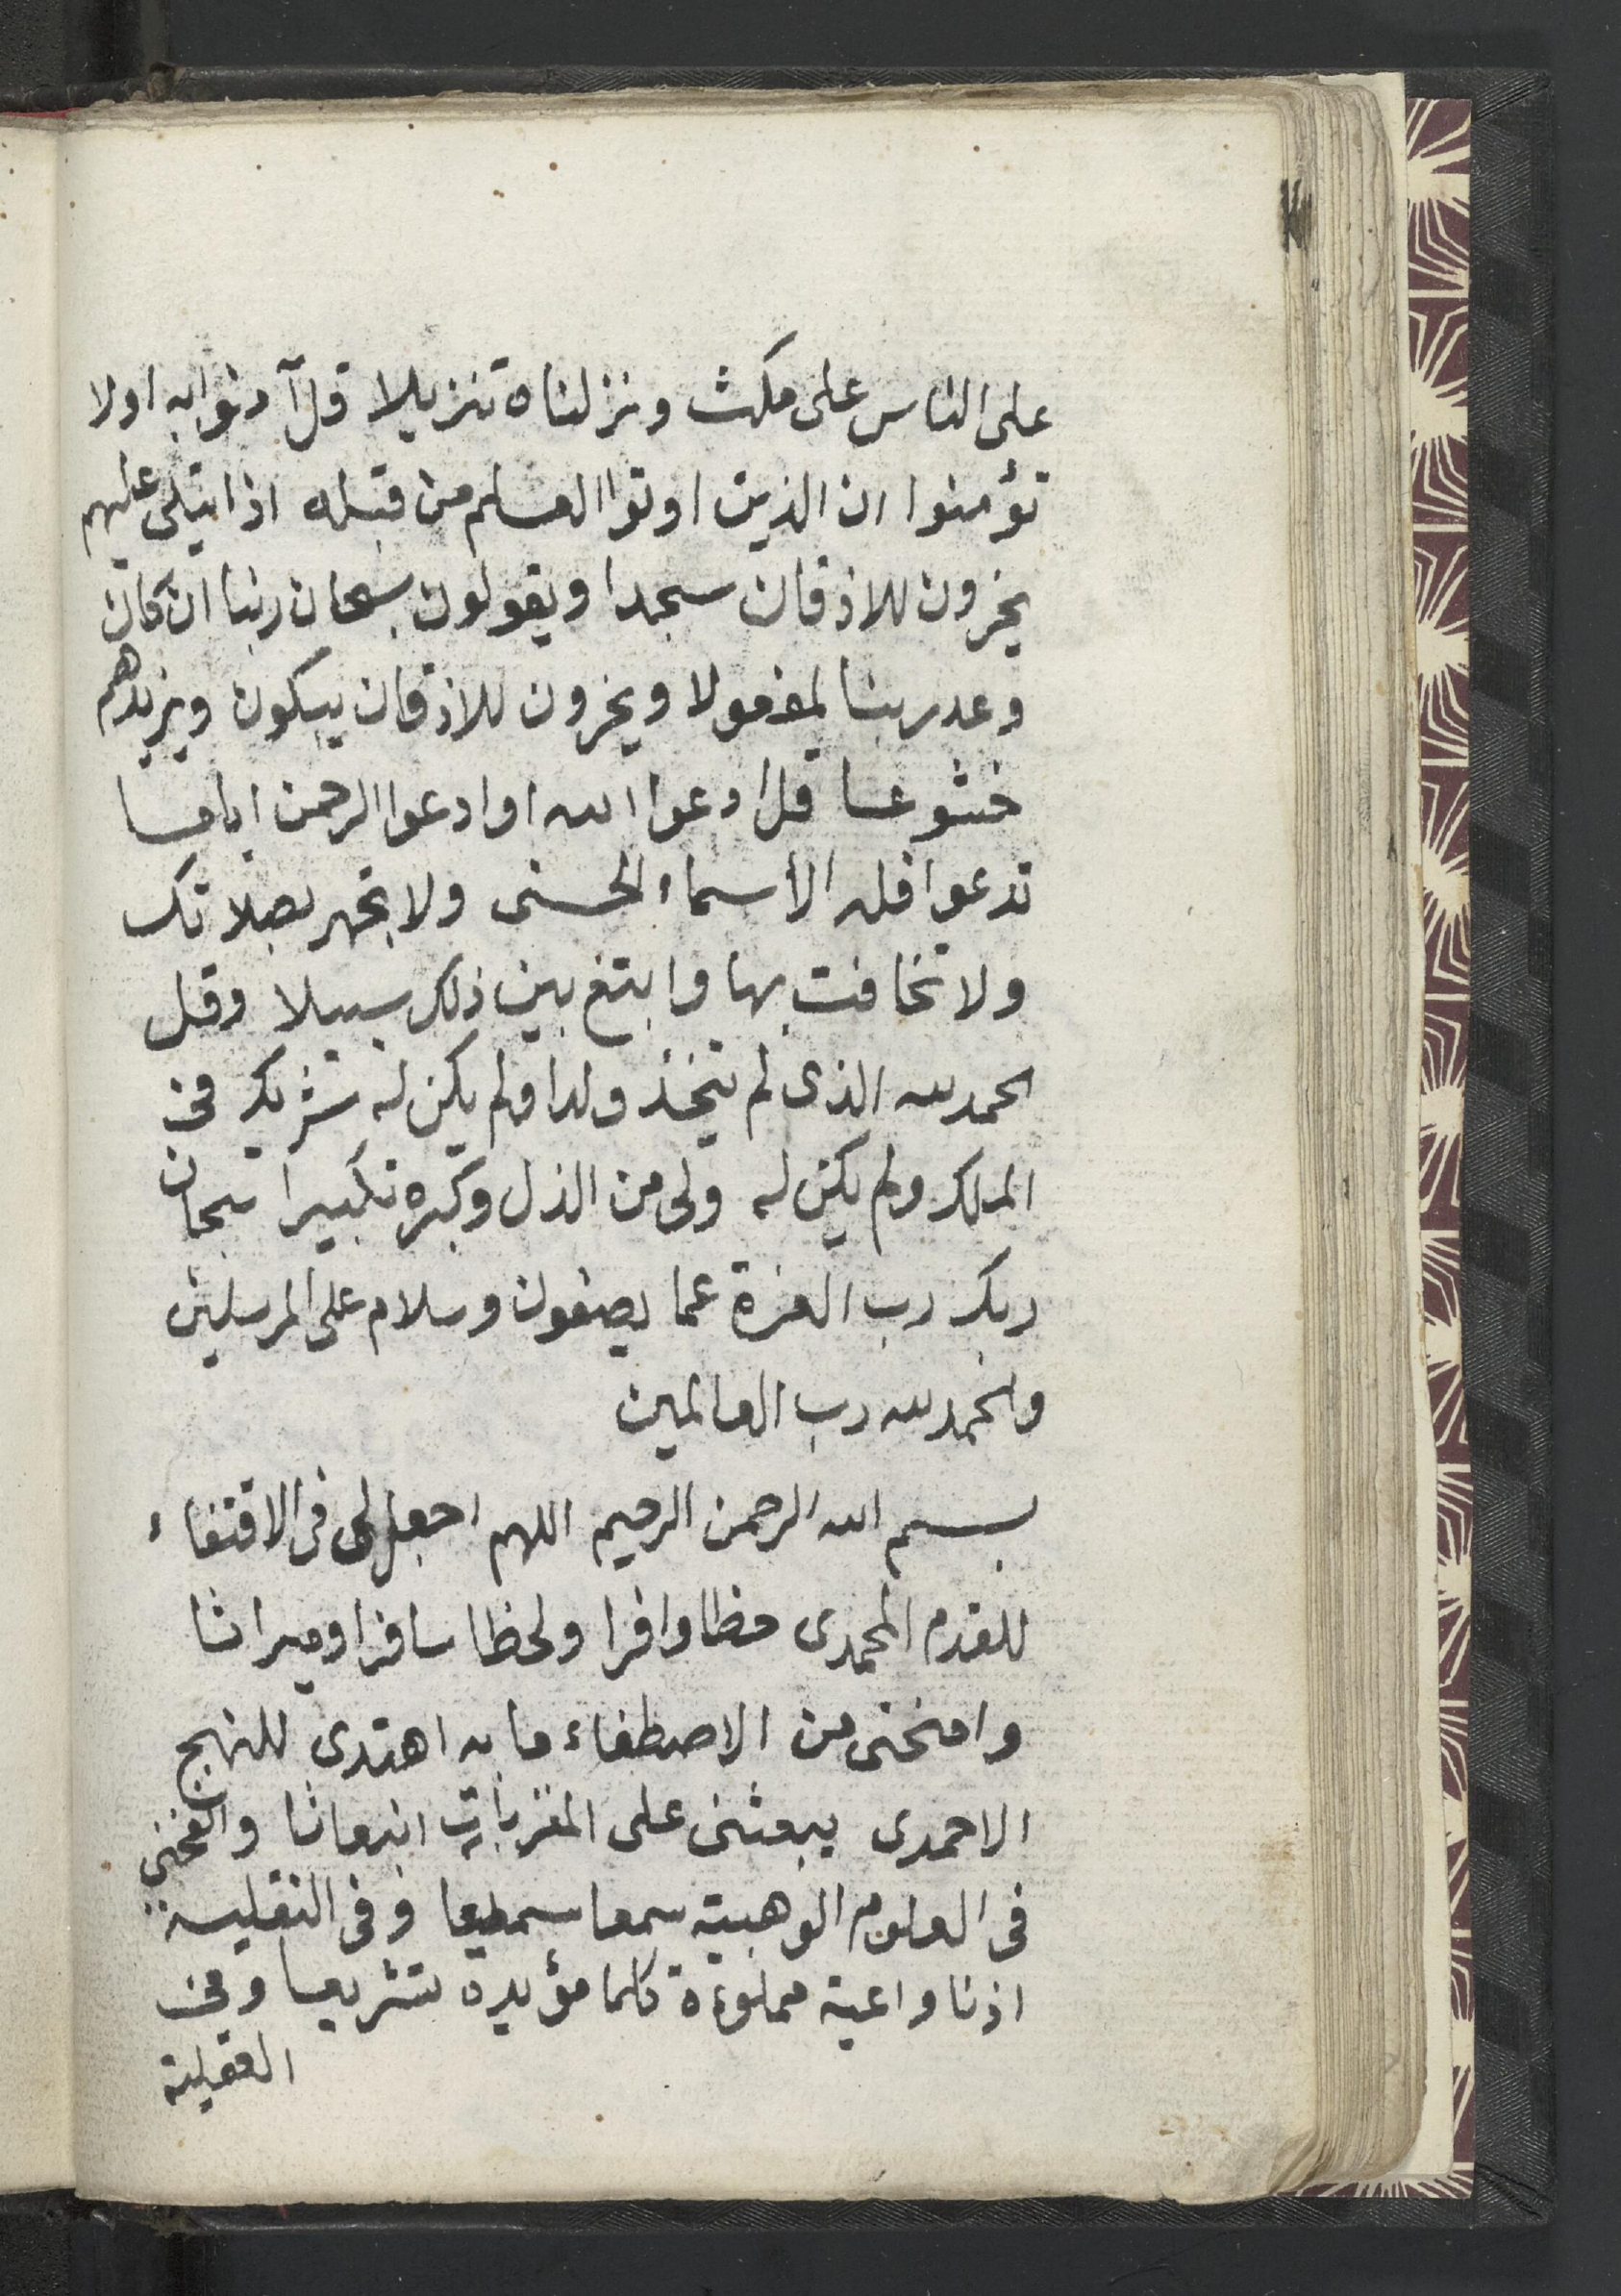 على الناس على مكث ونزلناه تنزيلا قل آمنوا به اولا
تؤمنوا ان الذين اوتوا العلم من قبله اذا يتلى عليهم
يخرون للاذقان سجدا ويقولون سبحان ربنا ان كان
وعد ربنا لمفعولا ويخرون للاذقان يبكون ويزيدهم
خشوعا قل ادعوا الله او ادعوا الرحمن اياما
تدعوا فله الأسماء الحسنى ولا تجهر بصلاتك
ولا تخافت بها وابتغ بين ذلك سبيلا وقل
الحمد لله الذى لم يتخذ ولدا ولم يكن له شريك فى
الملك ولم يكن له ولى من الذل وكبره تكبيرا سبحان
ربك رب العزة عما يصفون وسلام على المرسلين
والحمد لله رب العالمين
بسم الله الرحمن الرحيم اللهم اجعل لى فى الاقتفاء
للقدم المحمدى حظا وافرا ولحظا سافرا وميراثا
وامنحنى من الاصطفاء ما به اهتدى للنهج
الاحمدى يبعثنى على المقربات انبعاثا وافتحنى
فى العلوم الوهبية سمعا سميعا وفى النقلية
اذنا واعية مملوءة كلما مؤيدة تشريعا وفى
العقلية